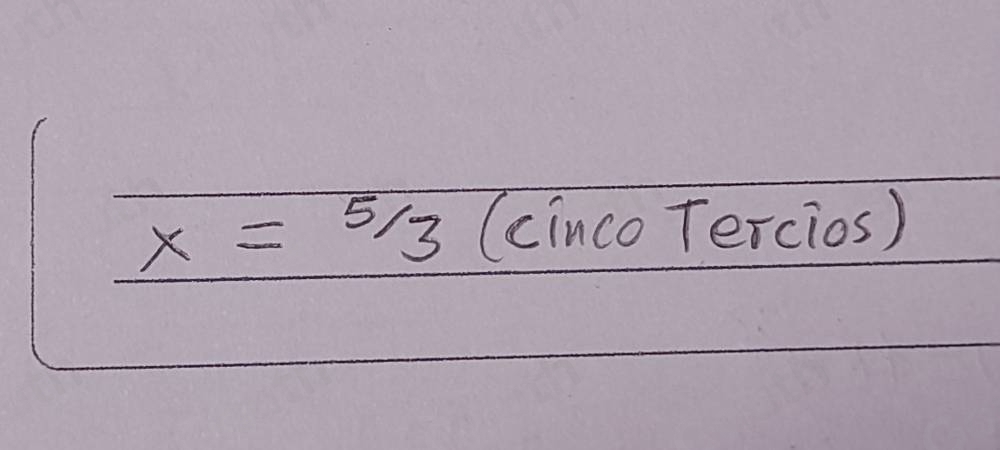 x = 5/3 (cinco Tercios)